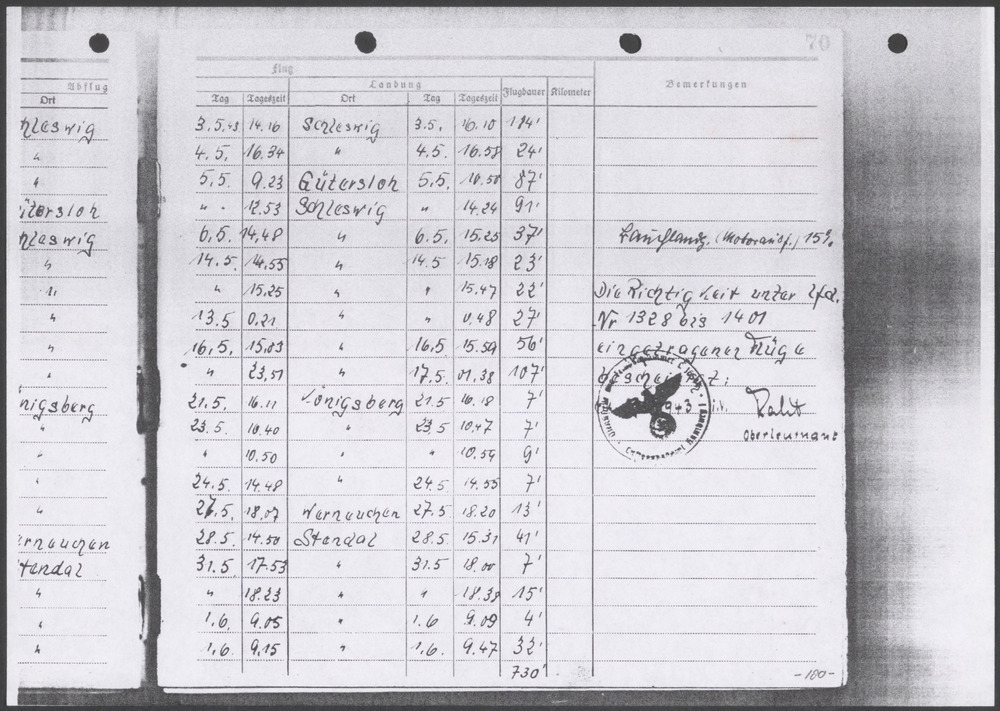 70
Flug
Abflug Landung Flugdauer Kilometer Bemerkungen
Ort Tag Tageszeit Ort Tag Tageszeit
hleswig 3.5.43 14.16 Schleswig 3.5. 16.10 184'
" 4.5. 16.34 " 4.5. 16.58 24'
" 5.5. 9.23 Gütersloh 5.5. 10.50 87'
ütersloh " 12.53 Schleswig " 14.24 91'
hleswig 6.5. 14.48 " 6.5. 15.25 37' (Motorausf.) 15%
" 14.5. 14.55 " 14.5 15.18 23'
" " 15.25 " " 15.47 22' Die Richtigkeit unter Lfd.
" 13.5 0.21 " " 0.48 27' Nr 1328 bis 1401
" 16.5. 15.03 " 16.5 15.59 56' eingetragenen Flüge
" " 23.51 " 17.5. 01.38 107' bescheinigt:
nigsberg 21.5. 16.11 Königsberg 21.5 16.18 7' 1943 i.V.
" 23.5. 10.40 " 23.5 10.47 7' Oberleutnant
" " 10.50 " " 10.59 9'
" 24.5. 14.48 " 24.5 14.55 7'
" 27.5. 18.07 Werneuchen 27.5 18.20 13'
erneuchen 28.5. 14.50 Stendal 28.5 15.31 41'
tendal 31.5. 17.53 " 31.5 18.00 7'
" " 18.23 " " 18.38 15'
" 1.6. 9.05 " 1.6 9.09 4'
" 1.6. 9.15 " 1.6. 9.47 32'
730'
-160-